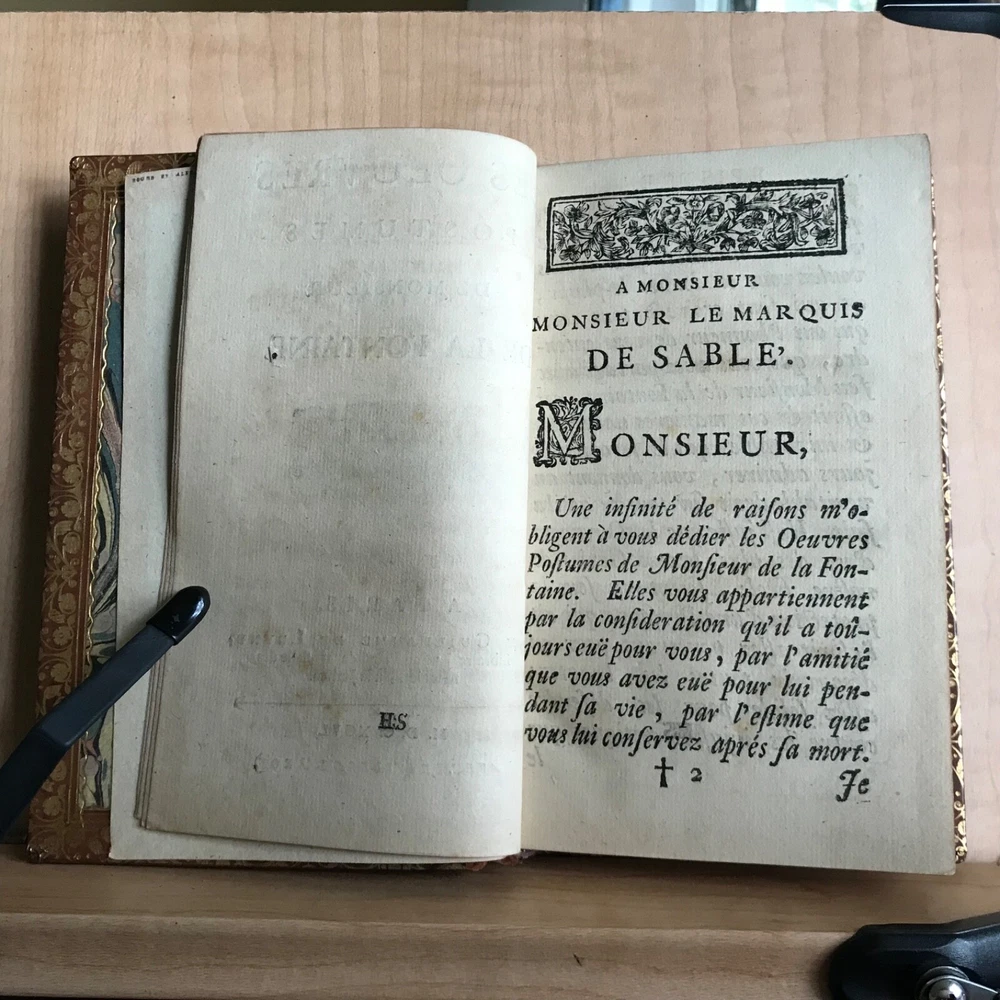 H:S
A MONSIEUR
MONSIEUR LE MARQUIS
DE SABLE'.
MONSIEUR,
Une infinité de raiſons m'o-
bligent à vous dédier les Oeuvres
Poſtumes de Monſieur de la Fon-
taine. Elles vous appartiennent
par la conſideration qu'il a toû-
jours euë pour vous, par l'amitié
que vous avez euë pour lui pen-
dant ſa vie, par l'eſtime que
vous lui conſervez aprés ſa mort.
† 2
Je